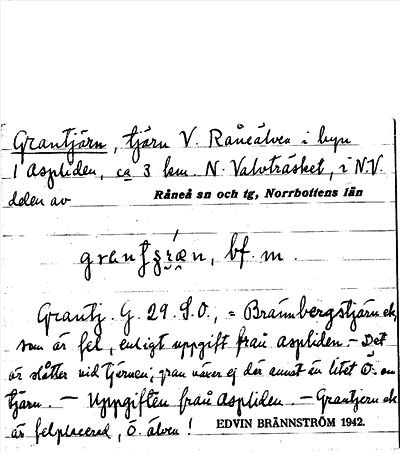 Grantjärn, tjärn V. Råneälven i byn
Aspliden, ca 3 km. N. Valvträsket, i N.V.
delen av Råneå sn och tg, Norrbottens län
bf. m.
Grantj. G. 29. S.O., = Brännbergstjärn ek,
som är fel, enligt uppgift från Aspliden. – Det
är slåtter vid tjärnen; gran växer ej där annat än litet Ö. om
tjärn. – Uppgiften från Aspliden. – Grantjern ek
är felplacerad, Ö. älven! EDVIN BRÄNNSTRÖM 1942.